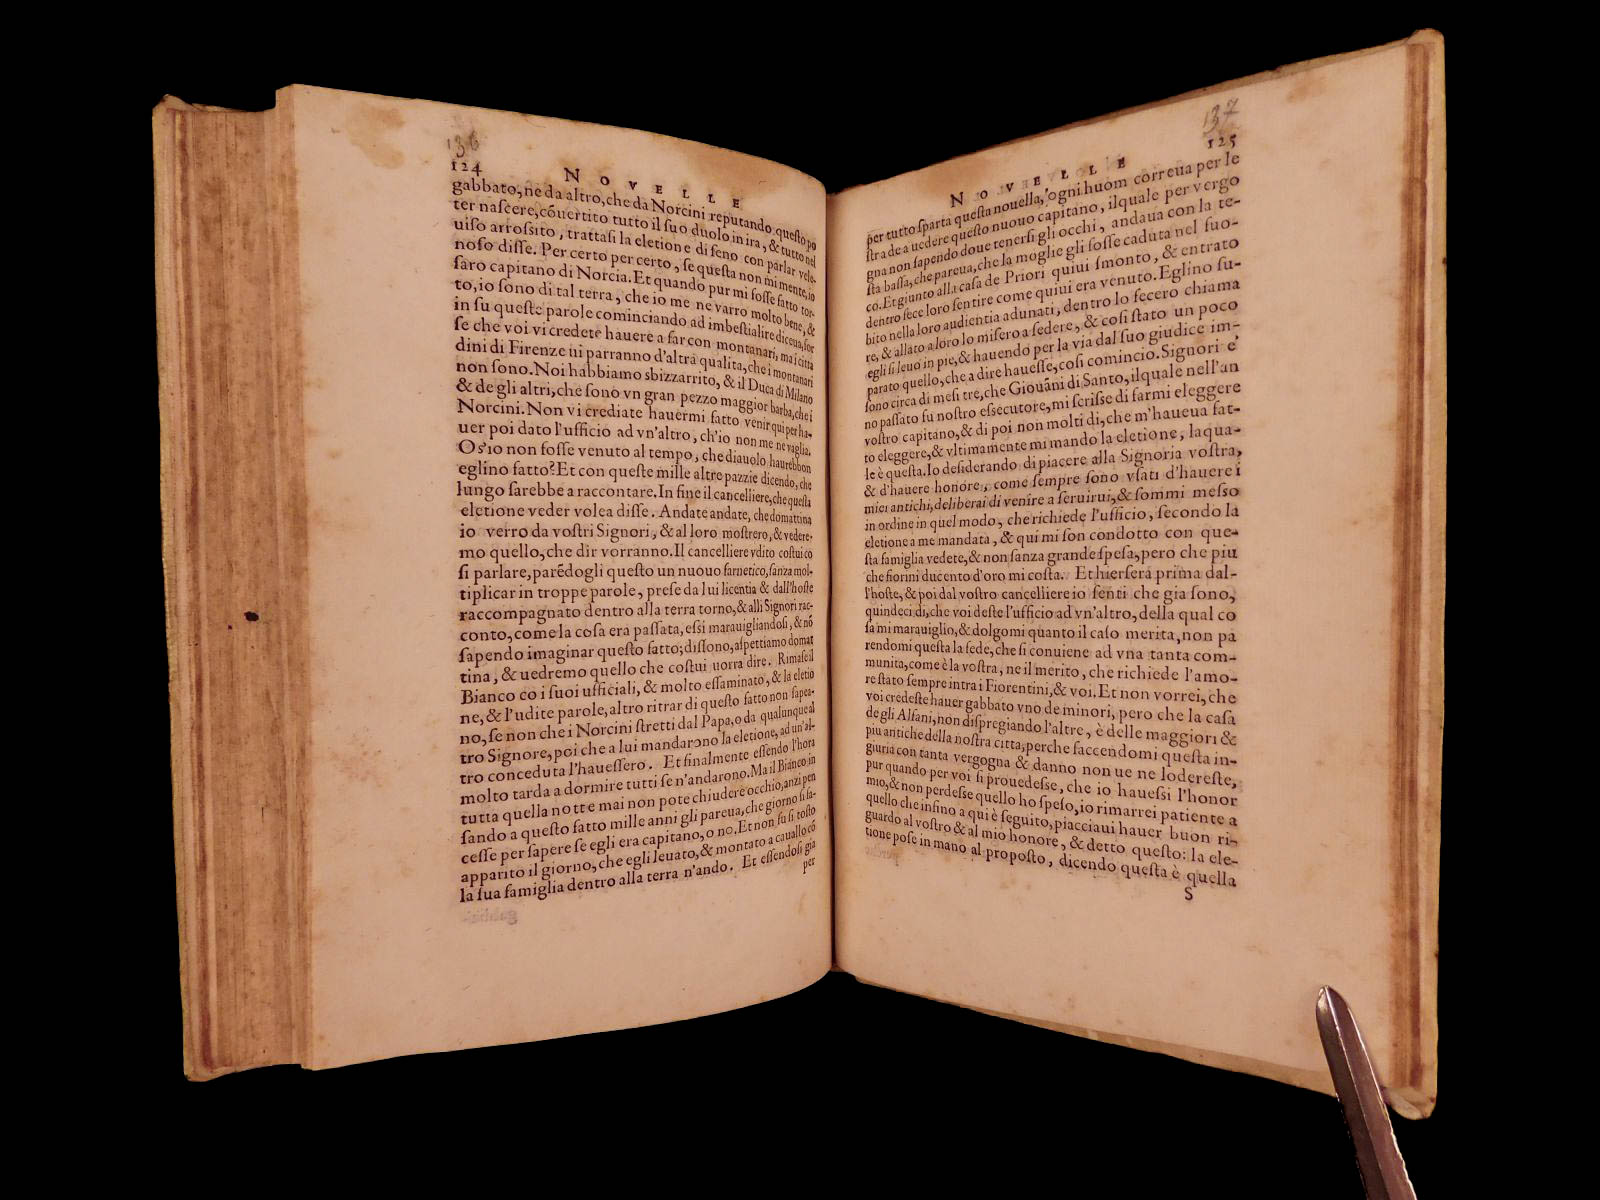 136
124
NOVELLE
gabbato, ne da altro, che da Norcini reputando questo po
ter nascere, cōuertito tutto il suo duolo in ira, & tutto nel
uiso arrossito, trattasi la eletione di seno con parlar vele-
noso disse. Per certo per certo, se questa non mi mente, io
saro capitano di Norcia. Et quando pur mi fosse fatto tor-
to, io sono di tal terra, che io me ne varro molto bene, &
in su queste parole cominciando ad imbestialire diceua, for
se che voi vi credete hauere a far con montanari, ma i citta
dini di Firenze ui parranno d'altra qualita, che i montanari
non sono. Noi habbiamo sbizzarrito, & il Duca di Milano
& de gli altri, che sono vn gran pezzo maggior barba, che i
Norcini. Non vi crediate hauermi fatto venir qui per ha-
uer poi dato l'ufficio ad vn'altro, ch'io non me ne vaglia.
O s'io non fosse venuto al tempo, che diauolo haurebbon
eglino fatto? Et con queste mille altre pazzie dicendo, che
lungo sarebbe a raccontare. In fine il cancelliere, che questa
eletione veder volea disse. Andate andate, che domattina
io verro da vostri Signori, & al loro mostrero, & vedere-
mo quello, che dir vorranno. Il cancelliere vdito costui co
si parlare, parēdogli questo un nuouo farnetico, sanza mol-
tiplicar in troppe parole, prese da lui licentia & dall'hoste
raccompagnato dentro alla terra torno, & alli Signori rac-
conto, come la cosa era passata, essi marauigliandosi, & nō
sapendo imaginar questo fatto; dissono, aspettiamo domat
tina, & uedremo quello che costui uorra dire. Rimase il
Bianco co i suoi ufficiali, & molto essaminato, & la eletio
ne, & l'udite parole, altro ritrar di questo fatto non sapea-
no, se non che i Norcini stretti dal Papa, o da qualunque al
tro Signore, poi che a lui mandarono la eletione, ad un'al-
tro conceduta l'hauessero. Et finalmente essendo l'hora
molto tarda a dormire tutti se n'andarono. Ma il Bianco in
tutta quella notte mai non pote chiudere occhio, anzi pen
sando a questo fatto mille anni gli pareua, che giorno si fa-
cesse per sapere se egli era capitano, o no. Et non fu si tosto
apparito il giorno, che egli leuato, & montato a cauallo cō
la sua famiglia dentro alla terra n'ando. Et essendosi gia
per
137
125
NOVELLE
per tutto sparta questa nouella, ogni huom correua per le
strade a uedere questo nuouo capitano, ilquale per vergo
gna non sapendo doue tenersi gli occhi, andaua con la te-
sta bassa, che pareua, che la moglie gli fosse caduta nel fuo-
co. Et giunto alla casa de Priori quiui smonto, & entrato
dentro fece loro sentire come quiui era venuto. Eglino su-
bito nella loro audientia adunati, dentro lo fecero chiama
re, & allato a loro lo misero a sedere, & cosi stato un poco
egli si leuo in pie, & hauendo per la via dal suo giudice im-
parato quello, che a dire hauesse, cosi comincio. Signori e'
sono circa di mesi tre, che Giouāni di Santo, ilquale nell'an
no passato fu nostro essecutore, mi scrisse di farmi eleggere
vostro capitano, & di poi non molti di, che m'haueua fat-
to eleggere, & vltimamente mi mando la eletione, laqua-
le è questa. Io desiderando di piacere alla Signoria vostra,
& d'hauere honore, come sempre sono vsati d'hauere i
miei antichi, deliberai di venire a seruirui, & sommi messo
in ordine in quel modo, che richiede l'ufficio, secondo la
eletione a me mandata, & qui mi son condotto con que-
sta famiglia vedete, & non sanza grande spesa, pero che piu
che fiorini ducento d'oro mi costa. Et hiersera prima dal-
l'hoste, & poi dal vostro cancelliere io senti che gia sono,
quindeci di, che voi deste l'ufficio ad vn'altro, della qual co
sa mi marauiglio, & dolgomi quanto il caso merita, non pa
rendomi questa la fede, che si conuiene ad vna tanta com-
munita, come è la vostra, ne il merito, che richiede l'amo-
re stato sempre intra i Fiorentini, & voi. Et non vorrei, che
voi credeste hauer gabbato vno de minori, pero che la casa
de gli Alfani, non dispregiando l'altre, è delle maggiori &
piu antiche della nostra citta, perche faccendomi questa in-
giuria con tanta vergogna & danno non ue ne lodereste,
pur quando per voi si prouedesse, che io hauessi l'honor
mio, & non perdesse quello ho speso, io rimarrei patiente a
quello che infino a qui è seguito, piacciaui hauer buon ri-
guardo al vostro & al mio honore, & detto questo: la ele-
tione pose in mano al proposto, dicendo questa è quella
S